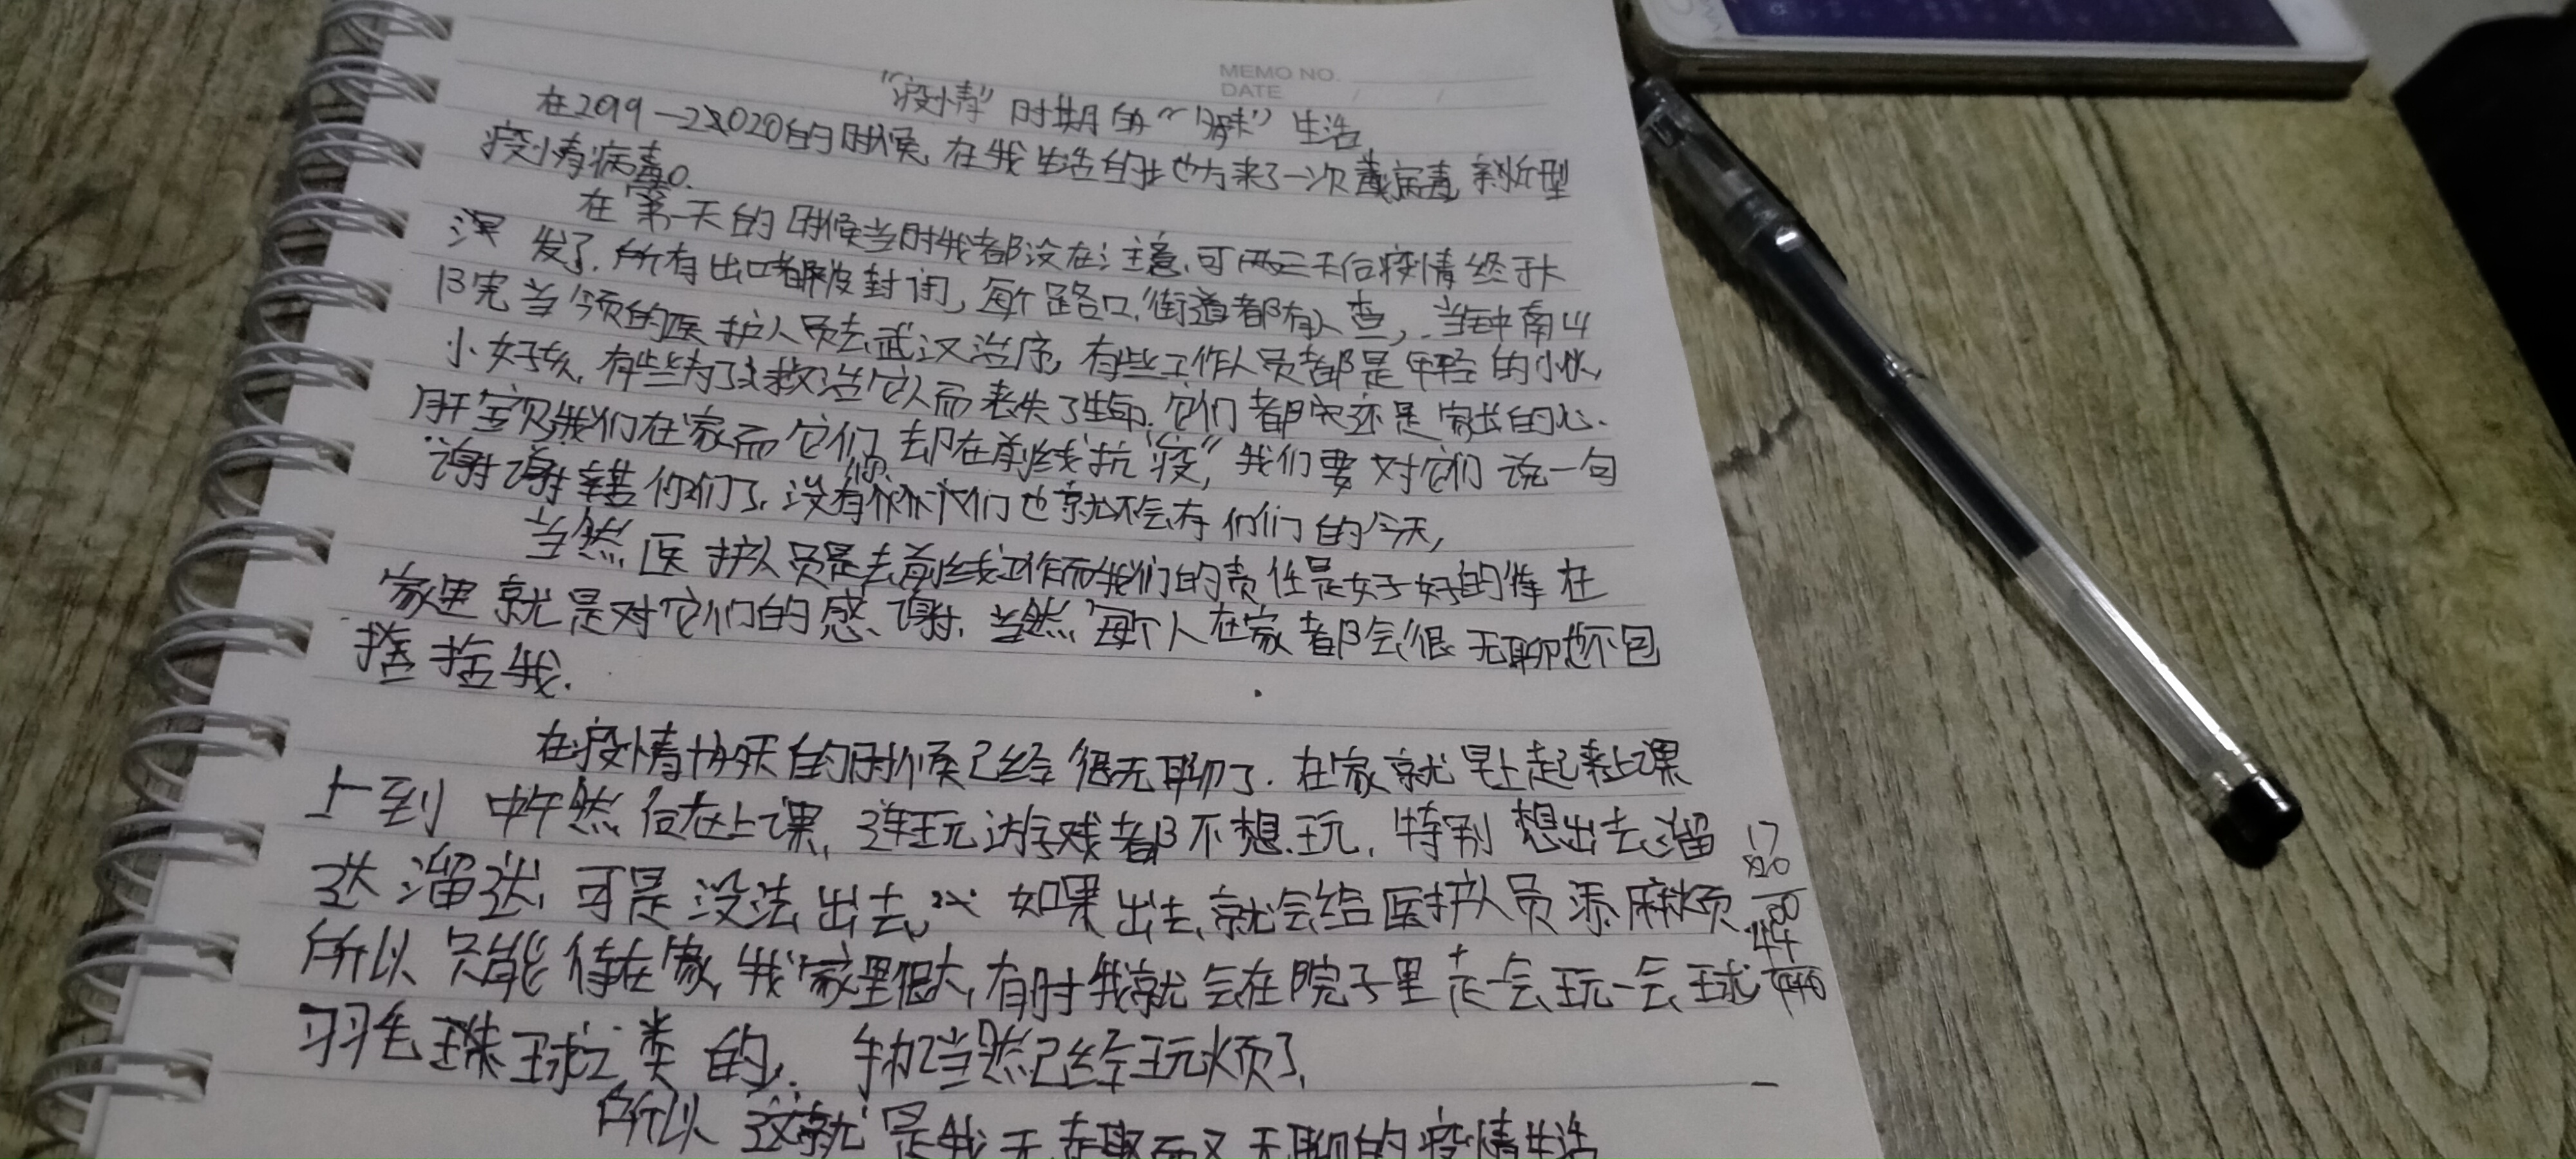 MEMO NO.
DATE
"疫情"时期的"   "生活
在2019-2020的时候,在我生活的地方来了一次 病毒 新型
疫情病毒。
在第一天的时候当时我都没在注意,可两三天后疫情终于大
爆发了.所有出口都被封闭,每个路口,街道都有人查,当钟南山
 带领的医护人员去武汉治疗,有些工作人员都是年轻的小伙,
小女孩,有些为了救治它人而丧失了生命.它们都 还是家长的心.
肝宝贝我们在家而它们却在前线抗"疫",我们要对它们说一句
"谢谢辛苦你们了,没有你们也就不会有 们的今天,
当然医护人员是去前线工作而我们的责任是好好的待在
家里就是对它们的感谢.当然每个人在家都会很无聊也不包
括我.
在疫情 天的时候已经很无聊了.在家就早上起来上课
上到中午然后在上课,连玩游戏都不想玩,特别想出去溜
达溜达,可是没法出去,如果出去,就会给医护人员添麻烦
所以只能待在家,我家里很大,有时我就会在院子里走一会,玩一会,球
羽毛球之类的.手机当然已经玩烦了,
所以这就是我无 趣而又无聊的疫情生活
17
44
440